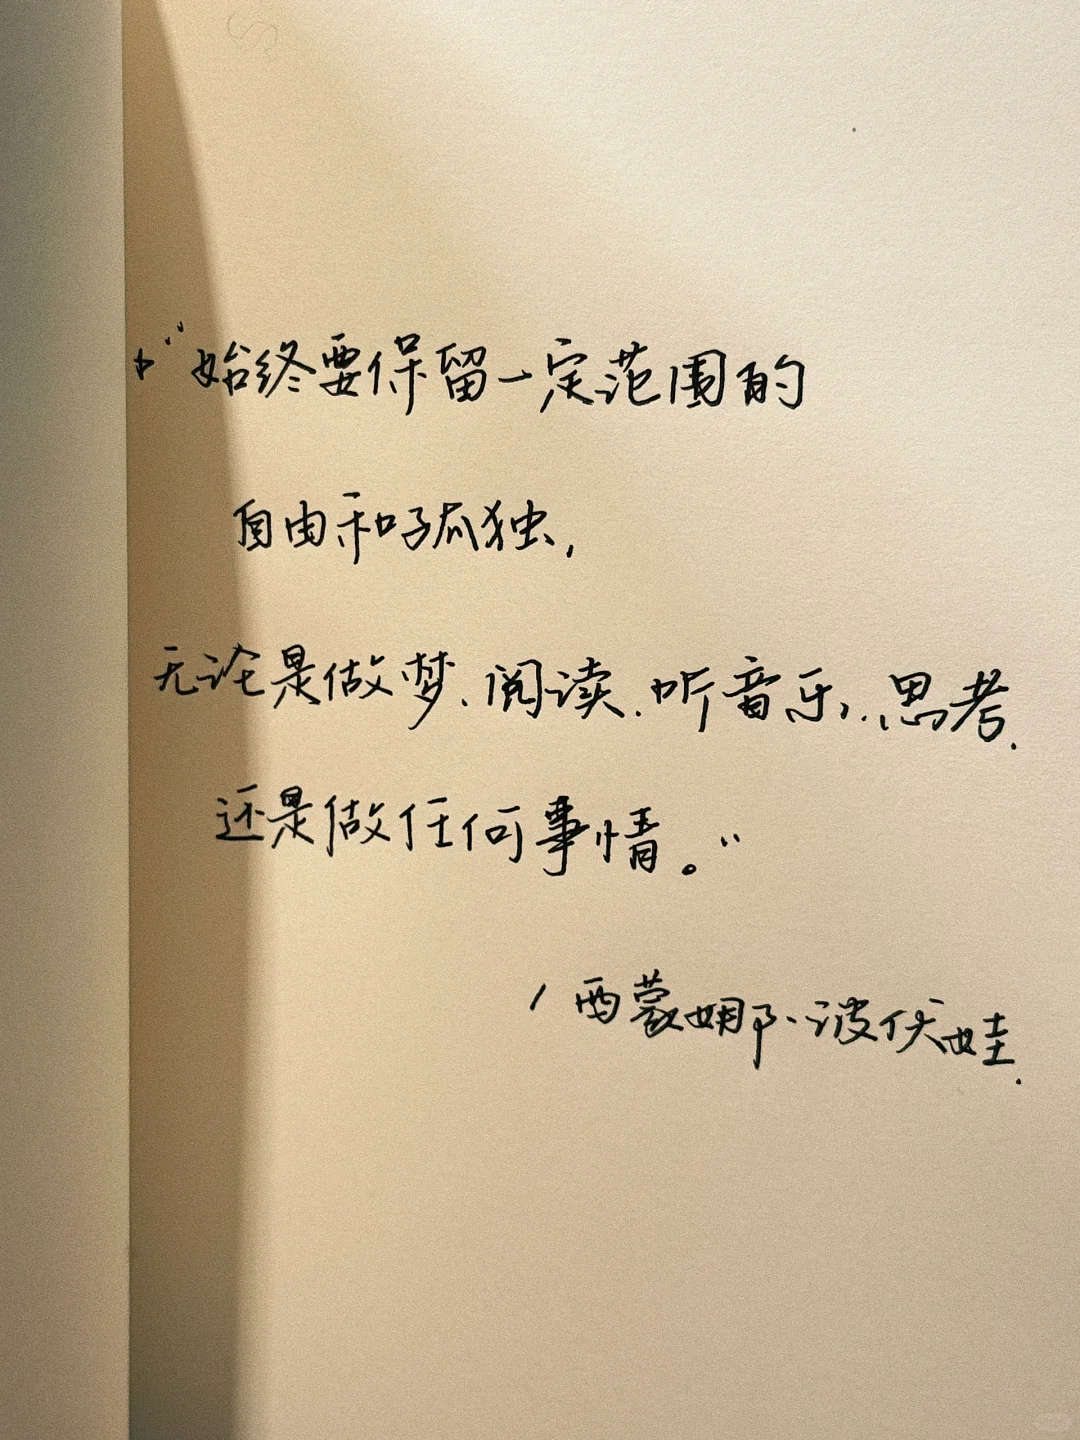 “始终要保留一定范围的
自由和孤独,
无论是做梦、阅读、听音乐、思考.
还是做任何事情。”
/ 西蒙娜·波伏娃.